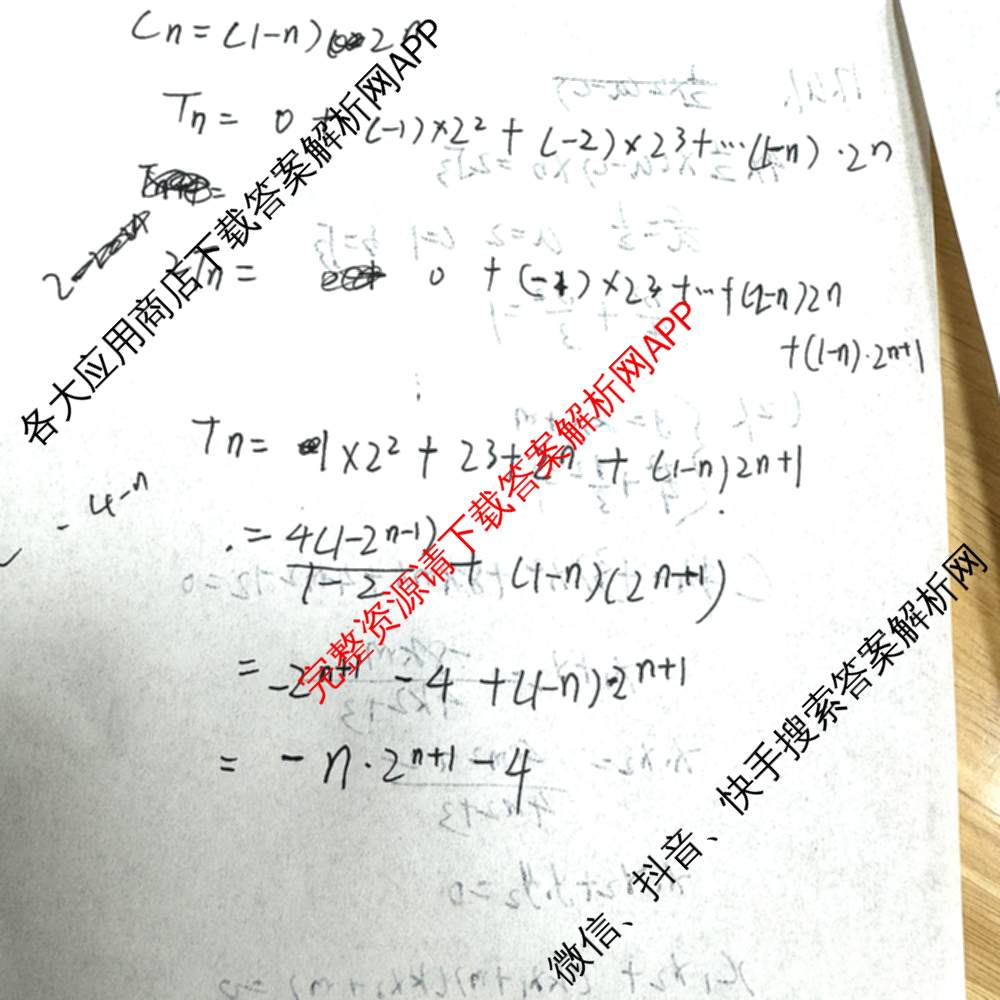 Cn = (1-n) 2
Tn = 0 + (-1)×2² + (-2)×2³+…(1-n)·2ⁿ
2Tn = 0 + (-1)×2³+…+(2-n)2ⁿ
+(1-n)·2ⁿ⁺¹
Tn = 1×2² + 2³+ 2ⁿ + (1-n)2ⁿ⁺¹
= 4(1-2ⁿ⁻¹)/(1-2) + (1-n)(2ⁿ⁺¹)
4-n
= -2ⁿ⁺¹ - 4 +(1-n)·2ⁿ⁺¹
= -n·2ⁿ⁺¹ - 4
各大应用商店下载答案解析网APP
完整资源请下载答案解析网APP
微信、抖音、快手搜索答案解析网